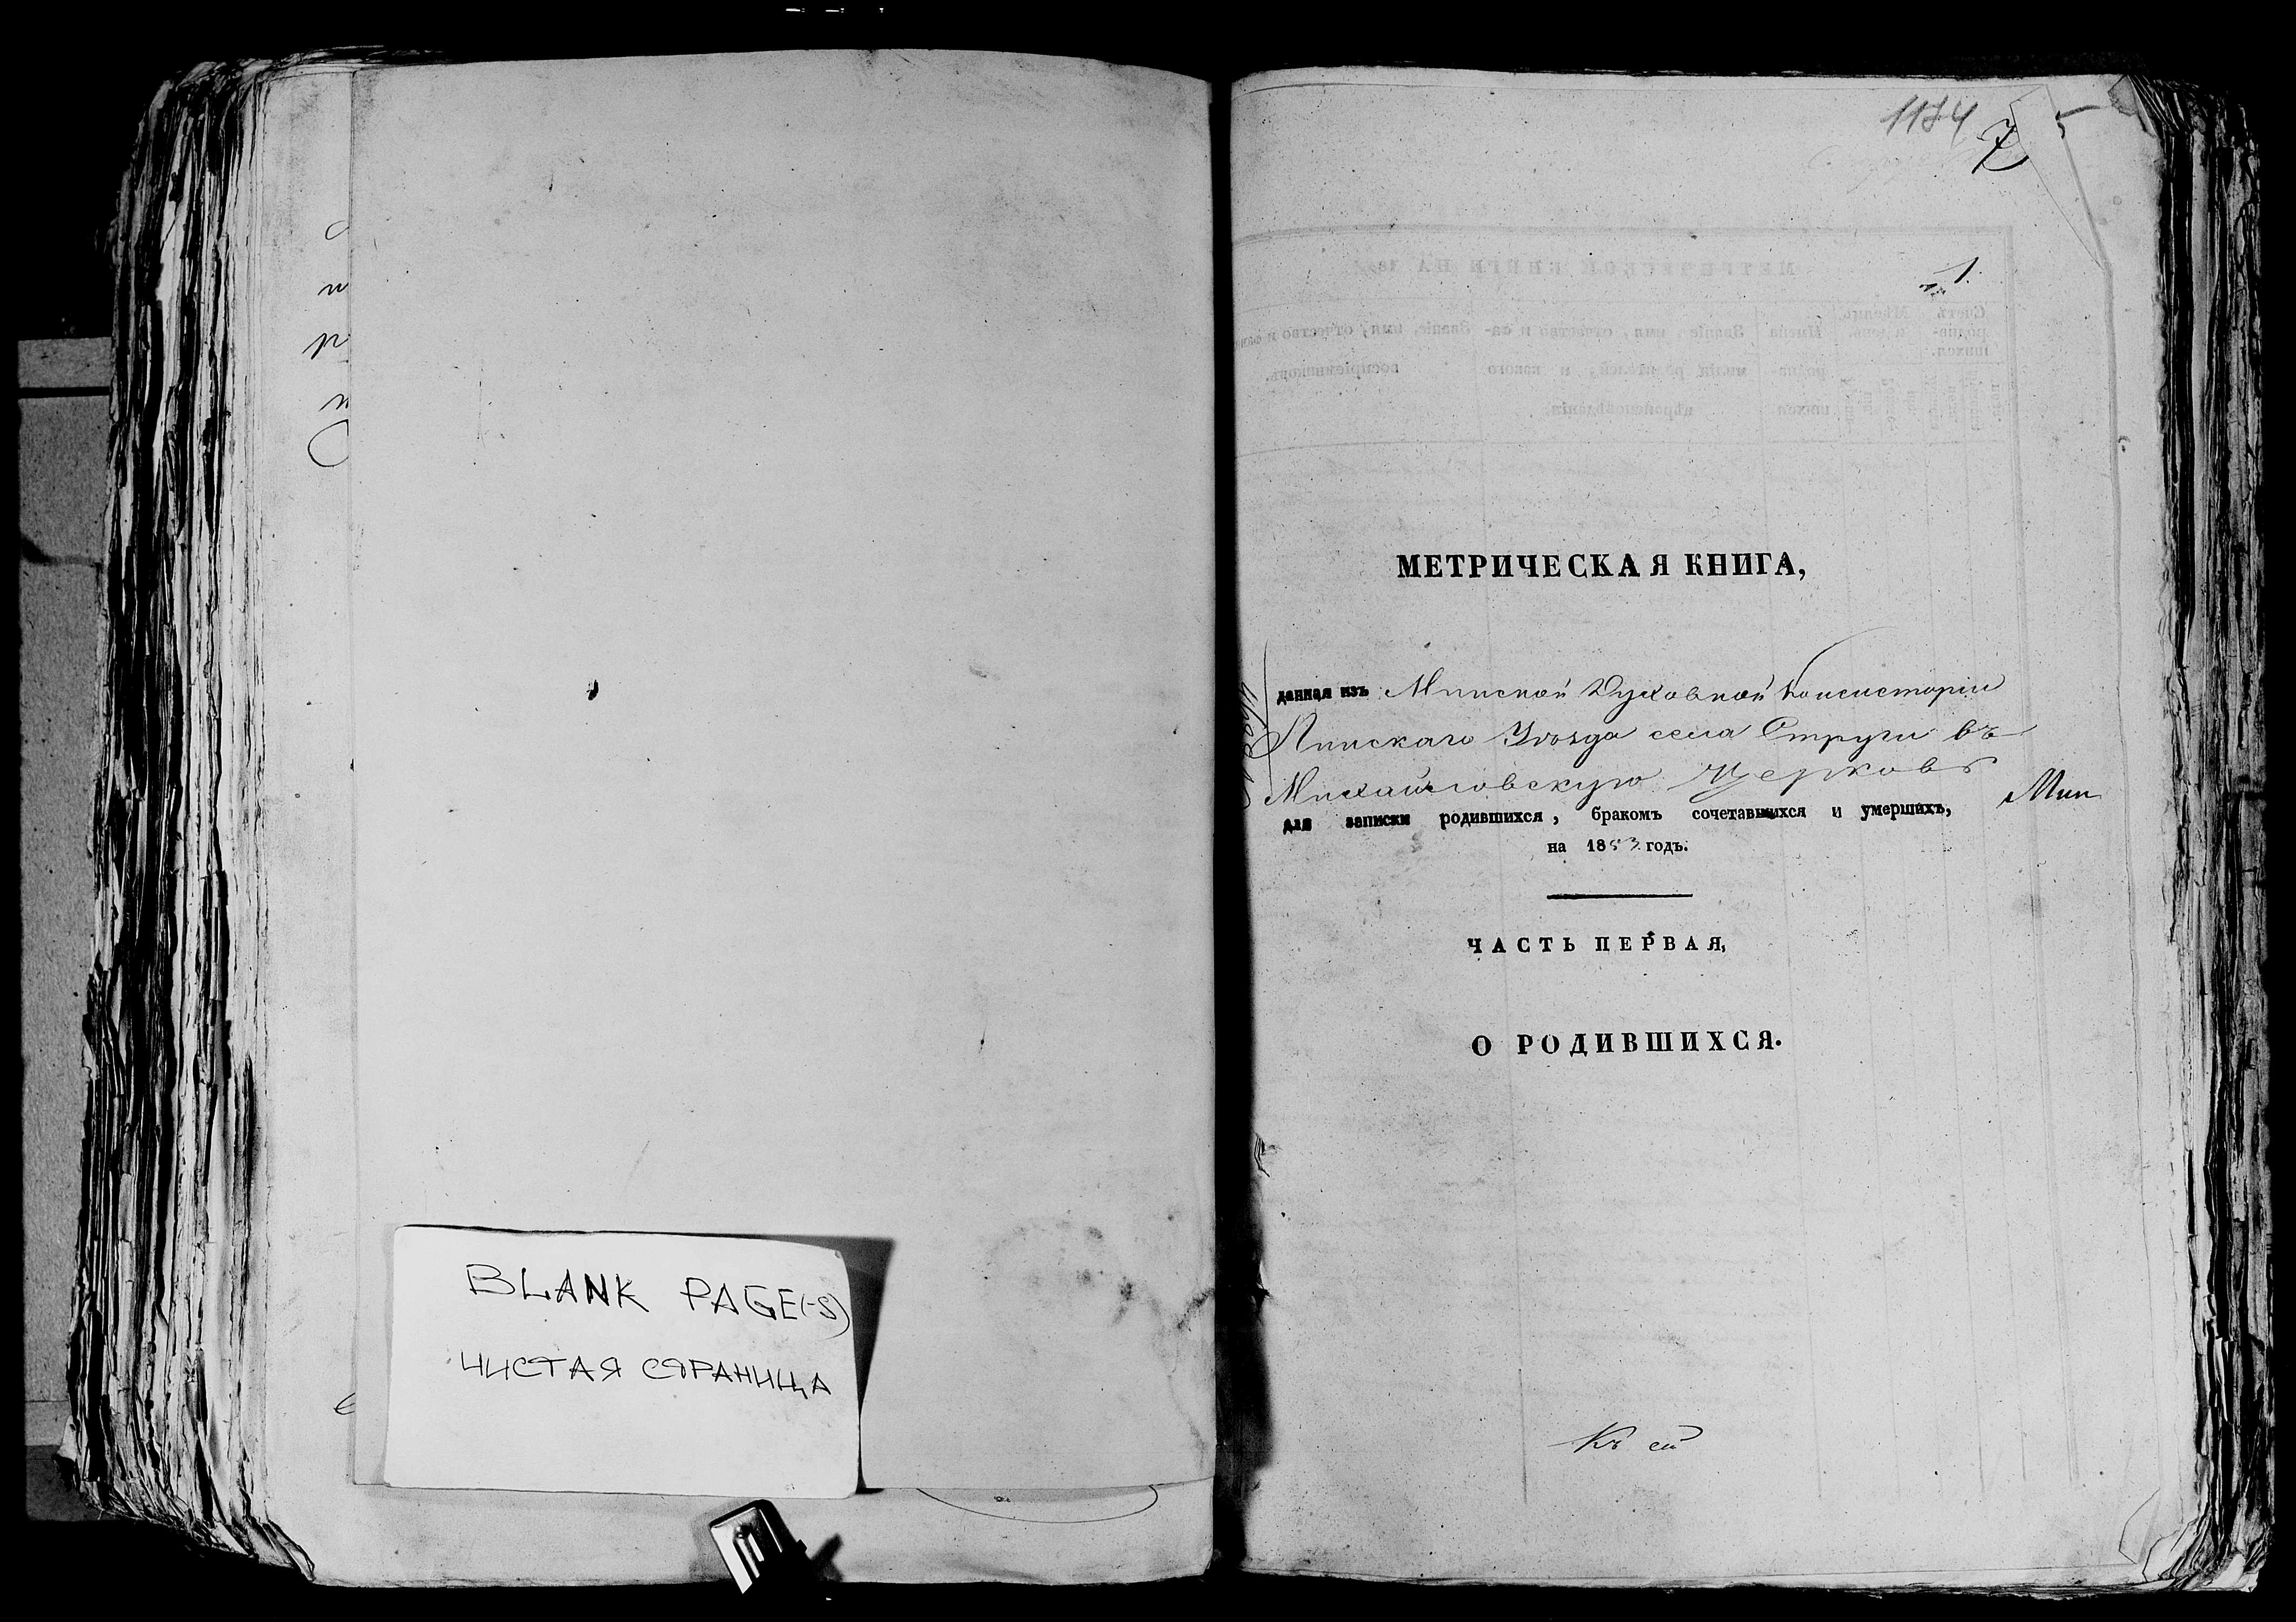 BLANK PAGE(-S)
ЧИСТАЯ СТРАНИЦА
1174
7
1.
МЕТРИЧЕСКАЯ КНИГА,
данная изъ Минской Духовной Консисторіи
Пинскаго Уѣзда села Струги въ
Михайловскую Церковь
Мин
для записки родившихся, бракомъ сочетавшихся и умершихъ,
на 1853 годъ.
ЧАСТЬ ПЕРВАЯ,
О РОДИВШИХСЯ.
Къ сей